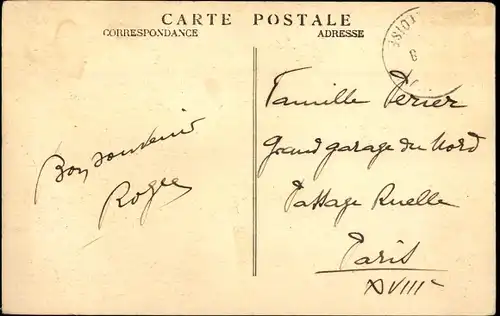 CARTE POSTALE
CORRESPONDANCE
ADRESSE
Bon souvenir
Roger
Famille Perier
Grand garage du Nord
Passage Ruelle
Paris
XVIIIe